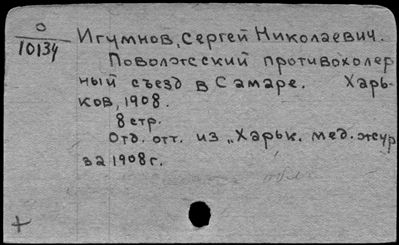 О
10134
Игумнов, Сергей Николаевич.
Поволжский противохолер
ный съезд в Самаре. Харь-
ков, 1908.
8 стр.
Отд. отт. из „Харьк. мед. журн
за 1908 г.